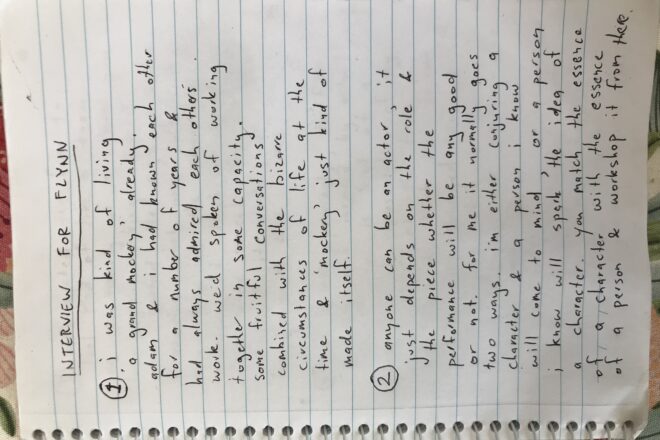 INTERVIEW FOR FLYNN
1. i was kind of living
'a grand mockery' already.
adam & i had known each other
for a number of years &
had always admired each others'
work. we'd spoken of working
together in some capacity.
some fruitful conversations
combined with the bizarre
circumstances of life at the
time & 'mockery' just kind of
made itself.
2 anyone can be an actor, it
just depends on the role &
the piece whether the
performance will be any good
or not. for me it normally goes
two ways. i'm either conjuring a
character & a person i know
will come to mind or a person
i know will spark the idea of
a character. you match the essence
of a character with the essence
of a person & workshop it from there.